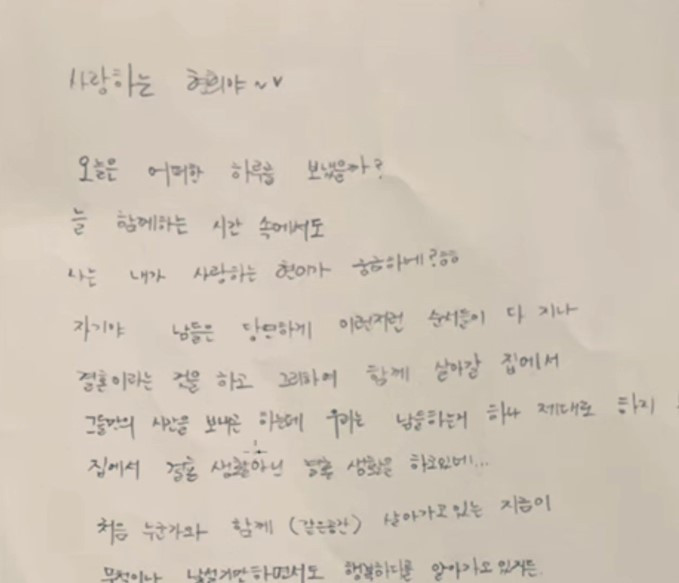 사랑하는 현희야~♥
오늘은 어떠한 하루를 보냈을까?
늘 함께하는 시간 속에서도
나는 내가 사랑하는 현이가 궁금하네?ㅎㅎ
자기야 남들은 당연하게 이런저런 순서들이 다 지나
결혼이라는 것을 하고 그리하여 함께 살아갈 집에서
그들만의 시간을 보내곤 하는데 우리는 남들하는거 하나 제대로 하지
집에서 결혼 생활아닌 결혼 생활을 하고있네...
처음 누군가와 함께 (같은공간) 살아가고 있는 지금이
낯설기만하면서도 행복하다를 알아가고 있거든